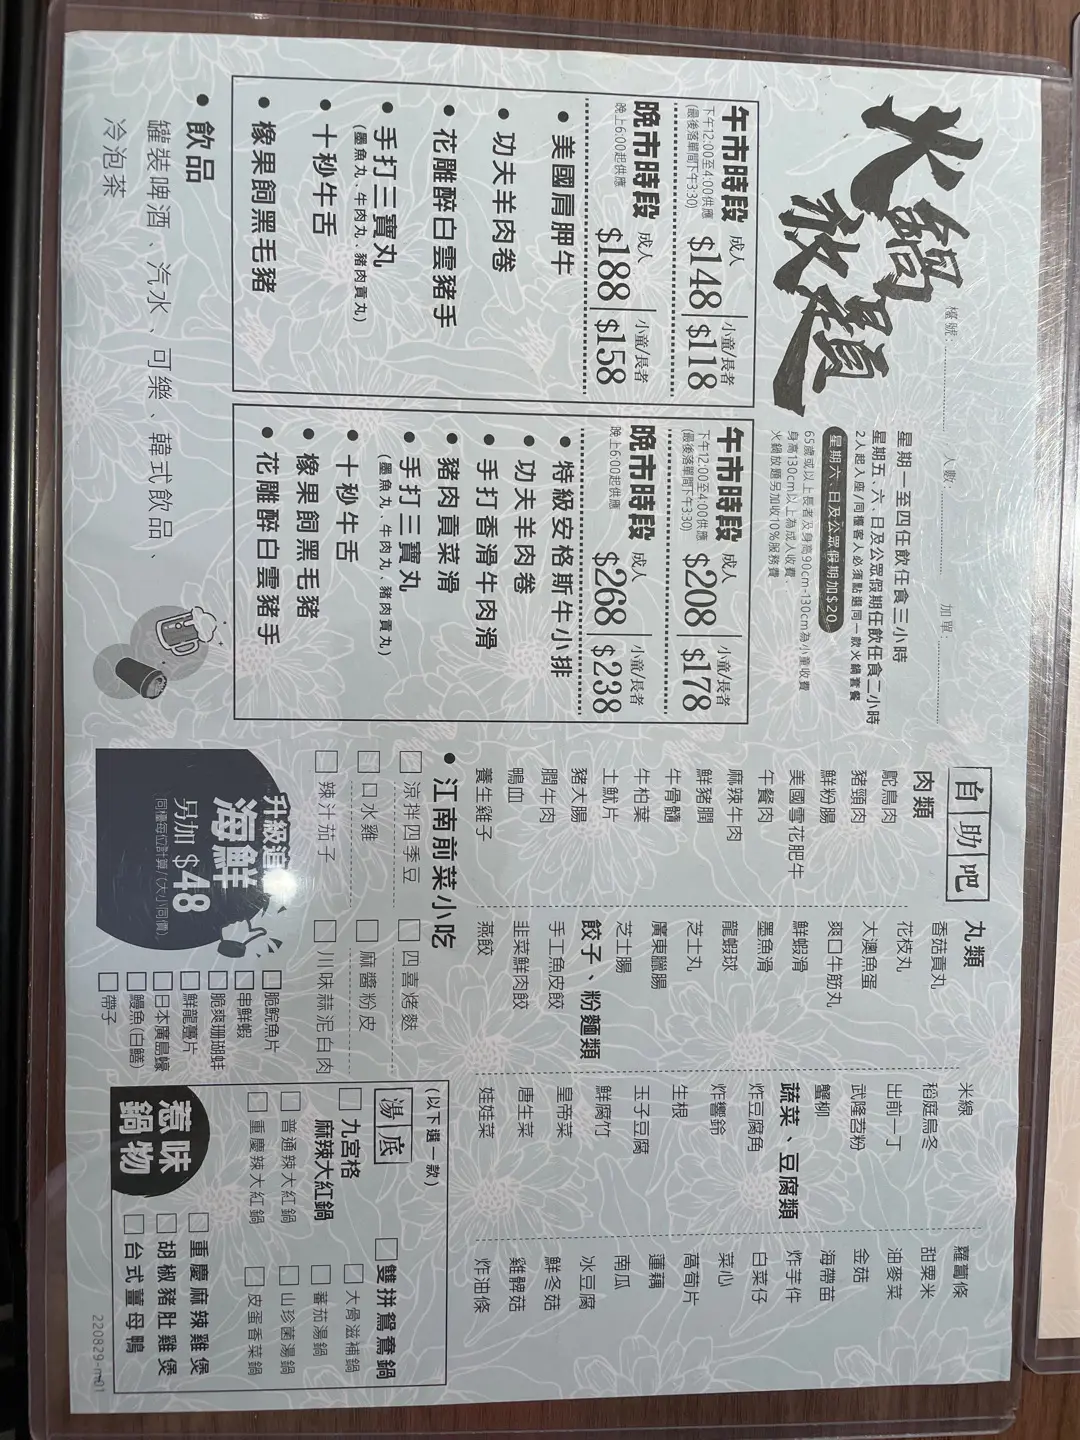 火鍋放題
檯號:
人數:
加單:
星期一至四任飲任食三小時
星期五、六、日及公眾假期任飲任食二小時
2人起入座/同檯客人必須點選同一款火鍋套餐
星期六、日及公眾假期加$20
65歲或以上長者及身高90cm-130cm為小童收費
身高130cm以上為成人收費
火鍋放題另加收10%服務費
午市時段
下午12:00至4:00供應
(最後落單間下午3:30)
成人
$148
小童/長者
$118
晚市時段
晚上6:00起供應
成人
$188
小童/長者
$158
• 美國肩胛牛
• 功夫羊肉卷
• 花雕醉白雲豬手
• 手打三寶丸
(墨魚丸、牛肉丸、豬肉貢丸)
• 十秒牛舌
• 橡果飼黑毛豬
午市時段
下午12:00至4:00供應
(最後落單間下午3:30)
成人
$208
小童/長者
$178
晚市時段
晚上6:00起供應
成人
$268
小童/長者
$238
• 特級安格斯牛小排
• 功夫羊肉卷
• 手打香滑牛肉滑
• 豬肉貢菜滑
• 手打三寶丸
(墨魚丸、牛肉丸、豬肉貢丸)
• 十秒牛舌
• 橡果飼黑毛豬
• 花雕醉白雲豬手
• 飲品
罐裝啤酒、汽水、可樂、韓式飲品、
冷泡茶
自助吧
肉類
鴕鳥肉
豬頸肉
鮮粉腸
美國雪花肥牛
午餐肉
麻辣牛肉
鮮豬膶
牛骨髓
牛柏葉
土魷片
豬大腸
膶牛肉
鴨血
養生雞子
丸類
香菇貢丸
花枝丸
大澳魚蛋
爽口牛筋丸
鮮蝦滑
墨魚滑
龍蝦球
芝士丸
廣東臘腸
芝士腸
餃子、粉麵類
手工魚皮餃
韭菜鮮肉餃
燕餃
米線
稻庭烏冬
出前一丁
武隆苕粉
蟹柳
蔬菜、豆腐類
炸豆腐角
炸響鈴
生根
玉子豆腐
鮮腐竹
皇帝菜
唐生菜
娃娃菜
蘿蔔條
甜粟米
油麥菜
金菇
海帶苗
炸芋件
白菜仔
菜心
萵筍片
蓮藕
南瓜
冰豆腐
鮮冬菇
雞髀菇
炸油條
• 江南前菜小吃
涼拌四季豆
四喜烤麩
口水雞
麻醬粉皮
辣汁茄子
川味蒜泥白肉
升級追加
海鮮
另加 $48
同檯每位計算/(大小同價)
脆鯇魚片
串鮮蝦
脆爽珊瑚蚌
鮮龍躉片
日本廣島蠔
鱔魚(白鱔)
帶子
湯底
(以下選一款)
九宮格
麻辣大紅鍋
雙拼鴛鴦鍋
普通辣大紅鍋
重慶辣大紅鍋
大骨滋補鍋
蕃茄湯鍋
山珍菌湯鍋
皮蛋香菜鍋
惹味
鍋物
重慶麻辣雞煲
胡椒豬肚雞煲
台式薑母鴨
220829-m-01